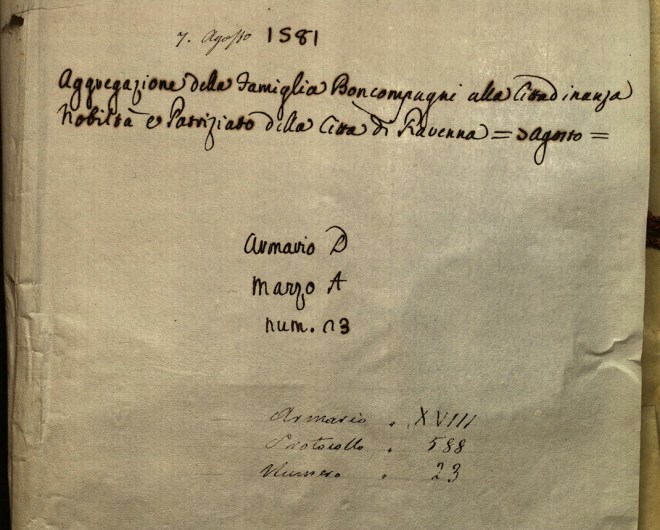 7. Agosto 1581
Aggregazione della Famiglia Boncompagni alla Cittadinanza
Nobiltà e Patriziato della Citta di Ravenna = 3 agosto =
Armario D
Mazzo A
num. 13
Armario . XVIII
Protocollo . 588
Numero . 23